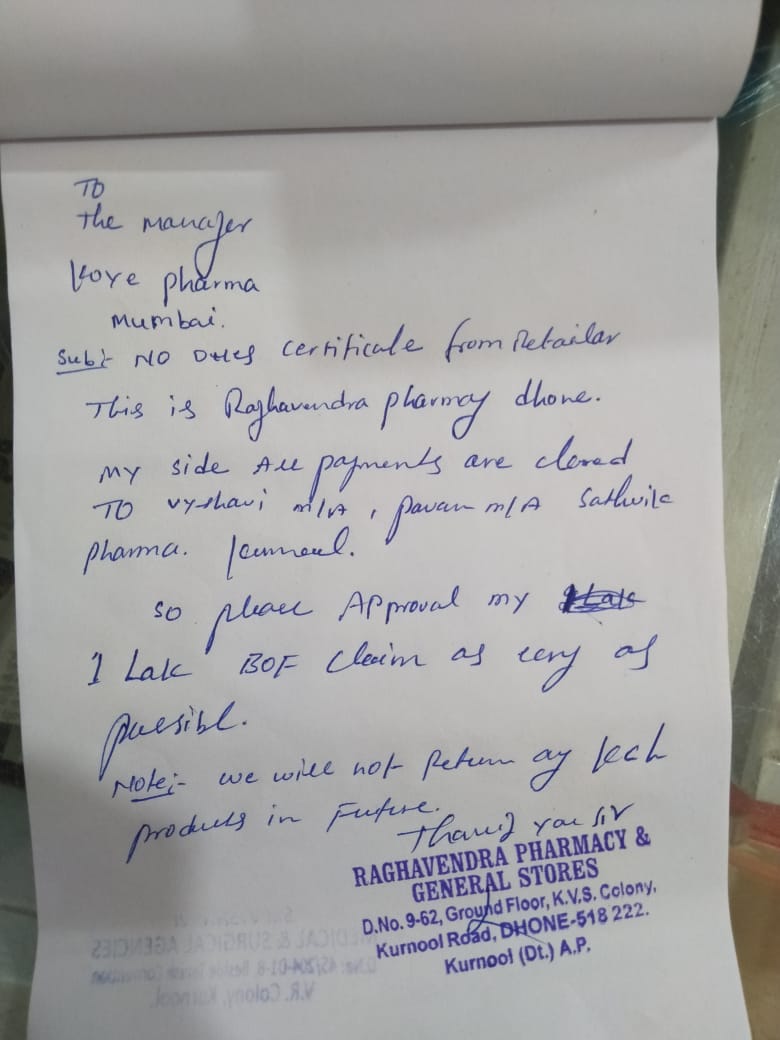 To
the manager
Koye pharma
Mumbai.
Sub:- NO Dues certificate from Retailar
This is Raghavendra pharmcy dhone.
my side All payments are closed
TO vyshavi m/A, pavan m/A Sathwik
pharma.
so please Approval my
1 Lak BOF claim as eery as
puesible.
Note:- we will not Return ay
products in Future.
Thank you sir
RAGHAVENDRA PHARMACY &
GENERAL STORES
D.No. 9-62, Ground Floor, K.V.S. Colony,
Kurnool Road, DHONE-518 222.
Kurnool (Dt.) A.P.
MEDICAL & SURGICAL AGENCIES
V.R. Colony, Kurnool.